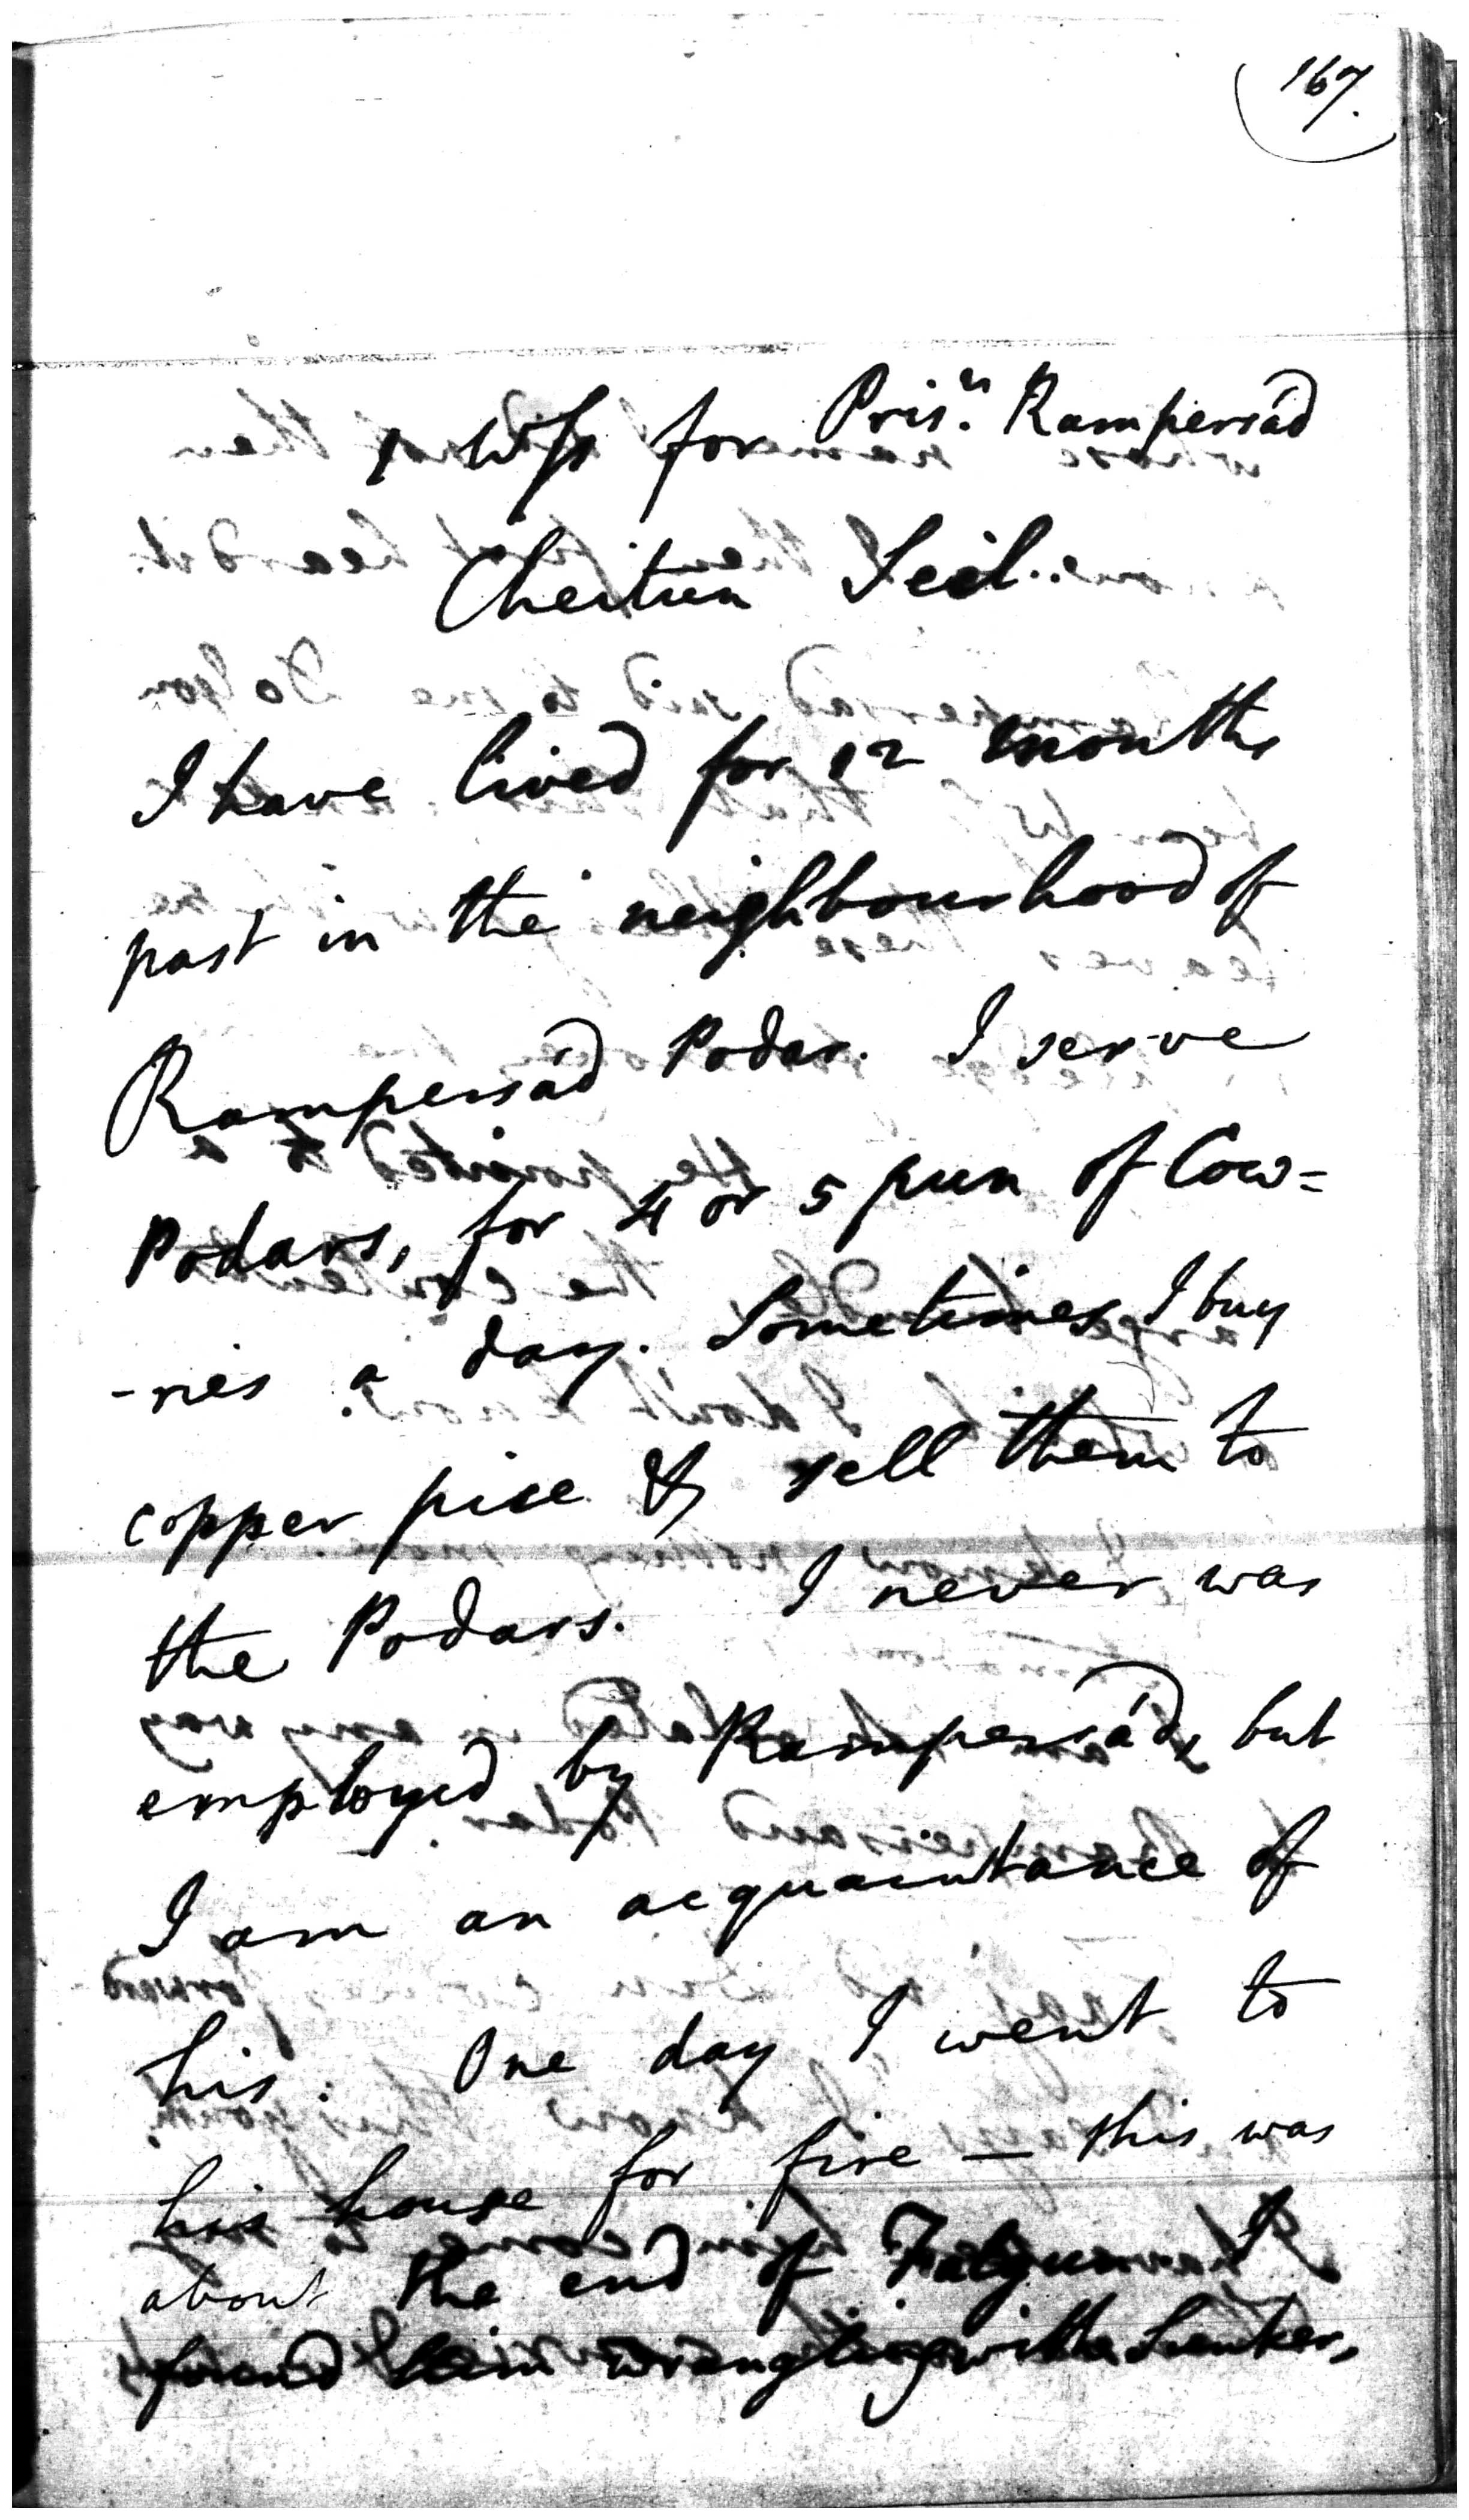 167.
1 Wss for Prisn. Rampersad
Cheitun Seil..
I have lived for 12 months
past in the neighbourhood of
Rampersad Podar. I serve
Podars, for 4 or 5 pun of Cow=
-ries a day. Sometimes I buy
copper pice & sell them to
the Podars. I never was
employed by Rampersad, but
I am an acquaintance of
his. One day I went to
his house for fire — this was
about the end of Falgun. I
found him wrangling with Sunker,